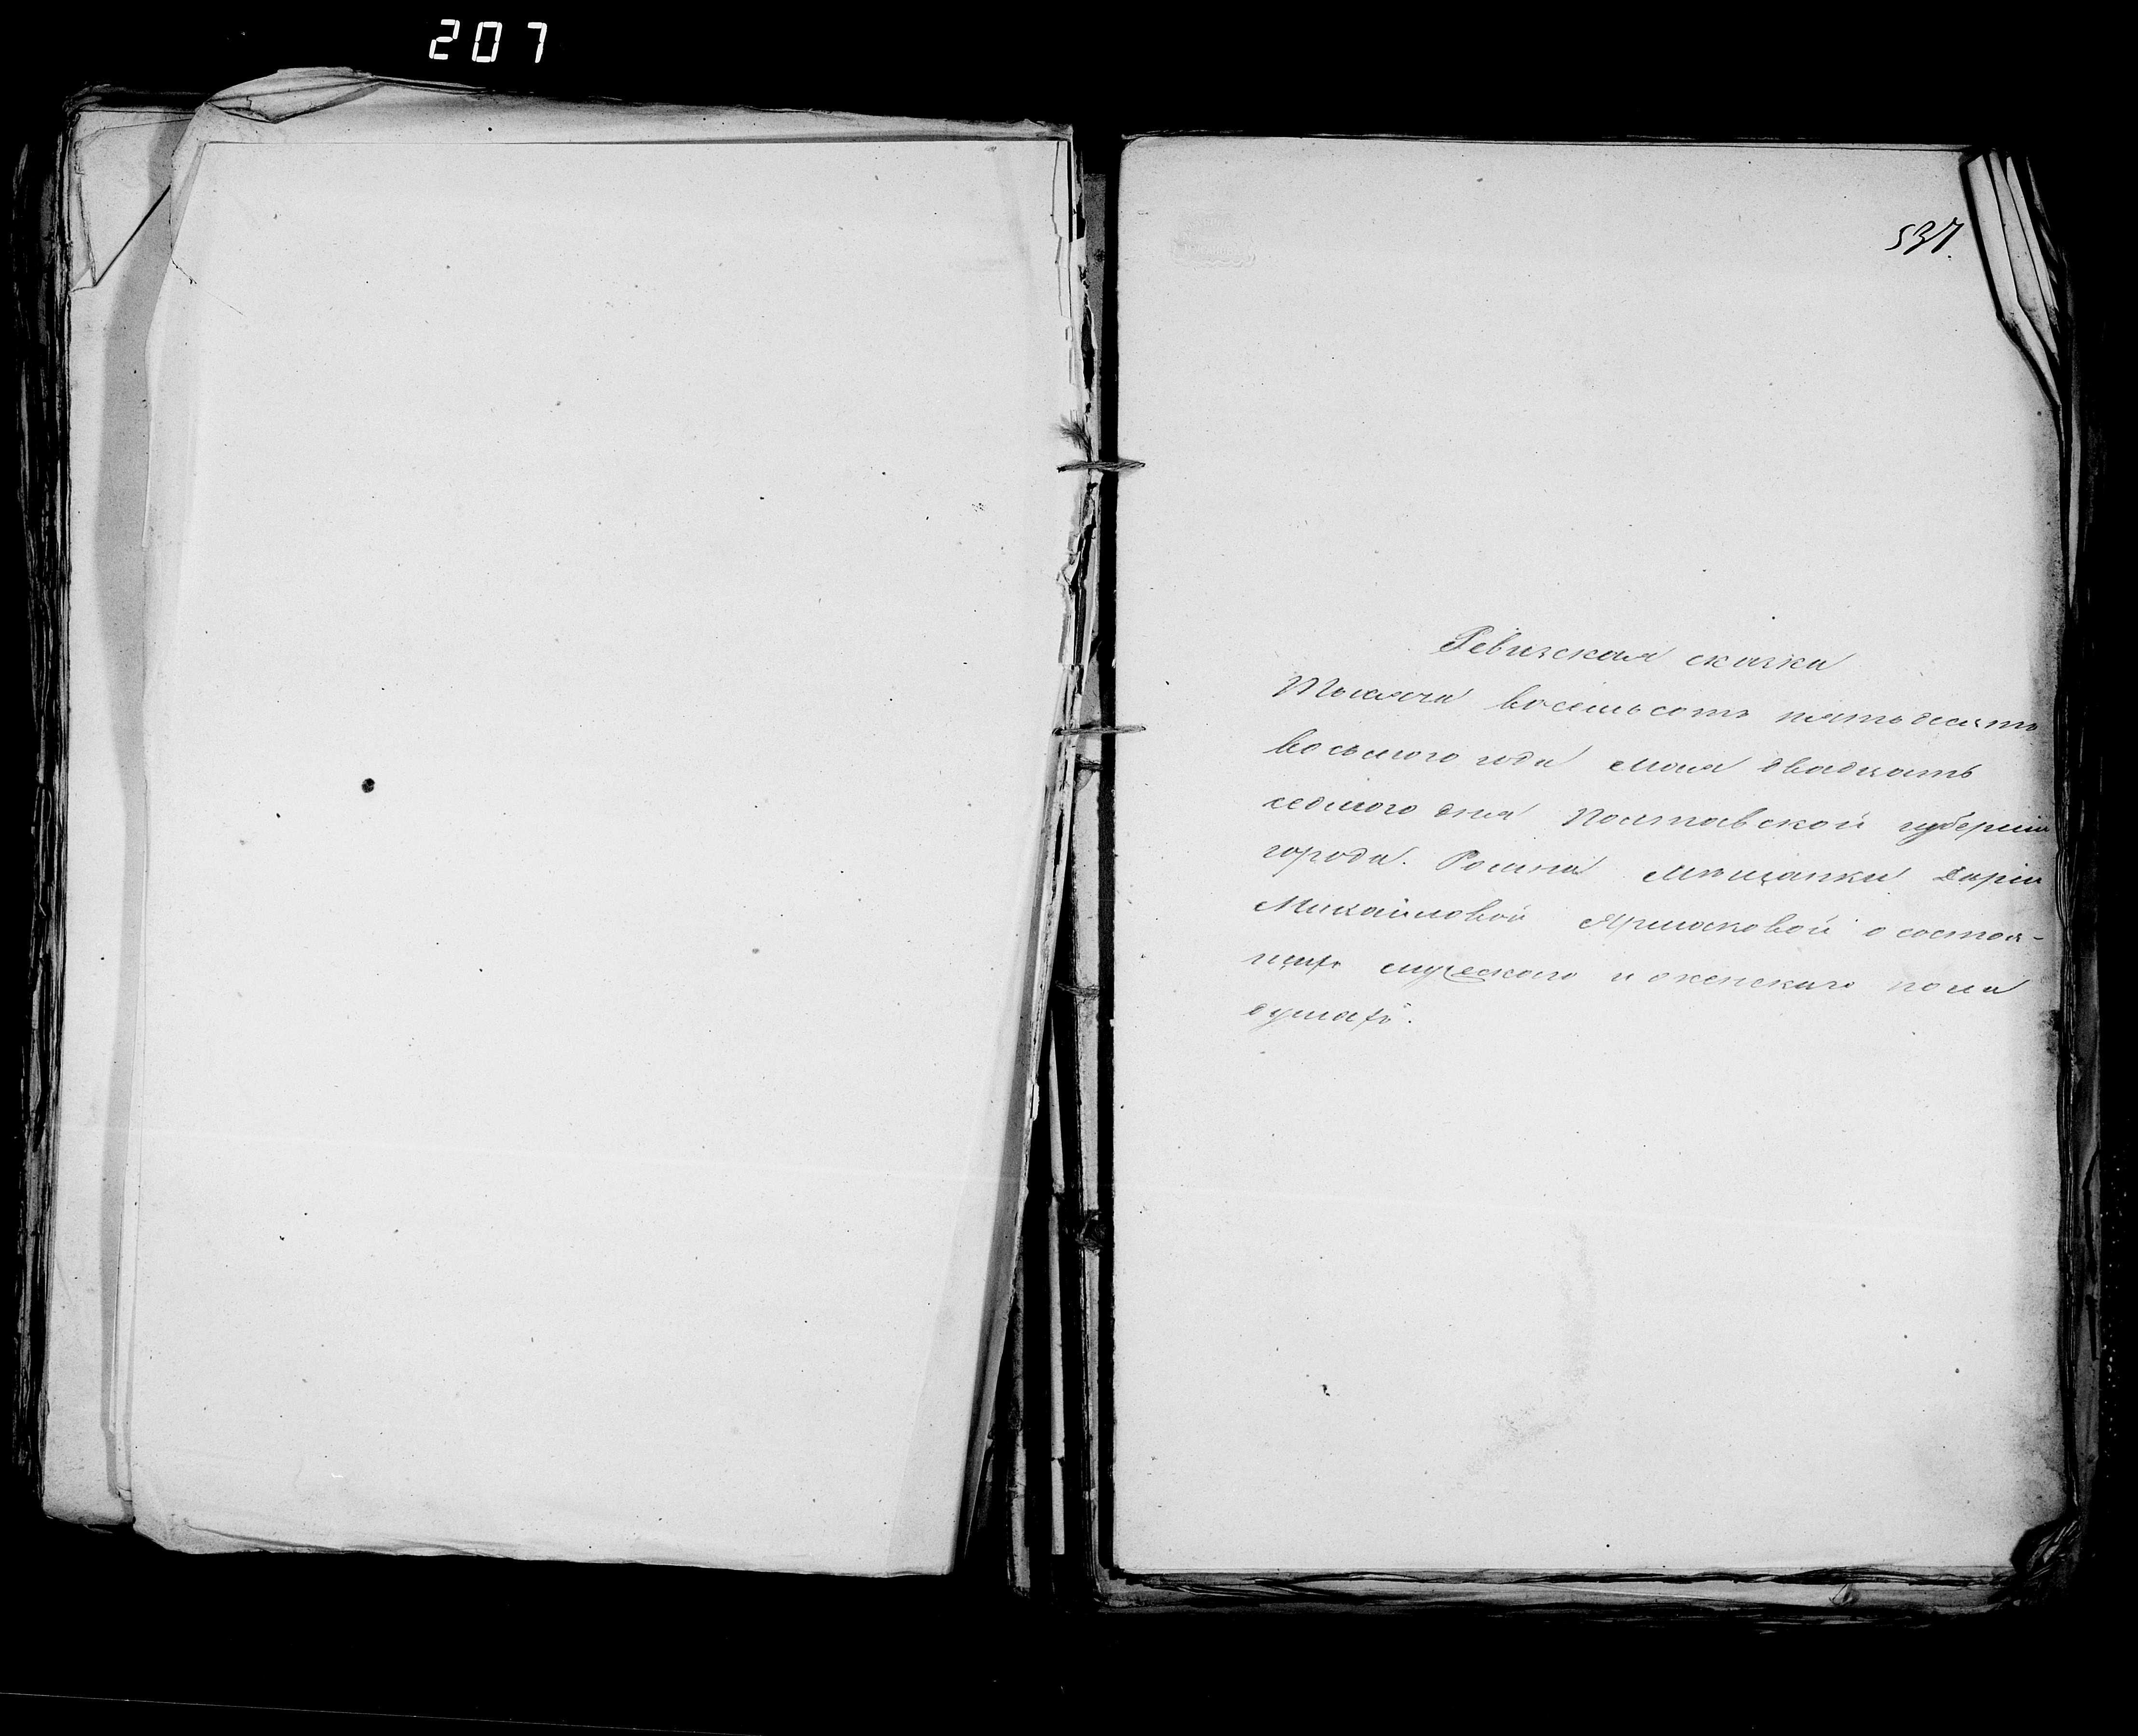 207
537.
Ревизская сказка
Тысяча восемьсотъ пятьдесятъ
восьмого года мая двадцать
седмого дня Полтавской губерніи
города Ромна Мѣщанки Даріи
Михайловой Ярмаковой о состоя-
щихъ мужескаго и женскаго пола
душахъ.